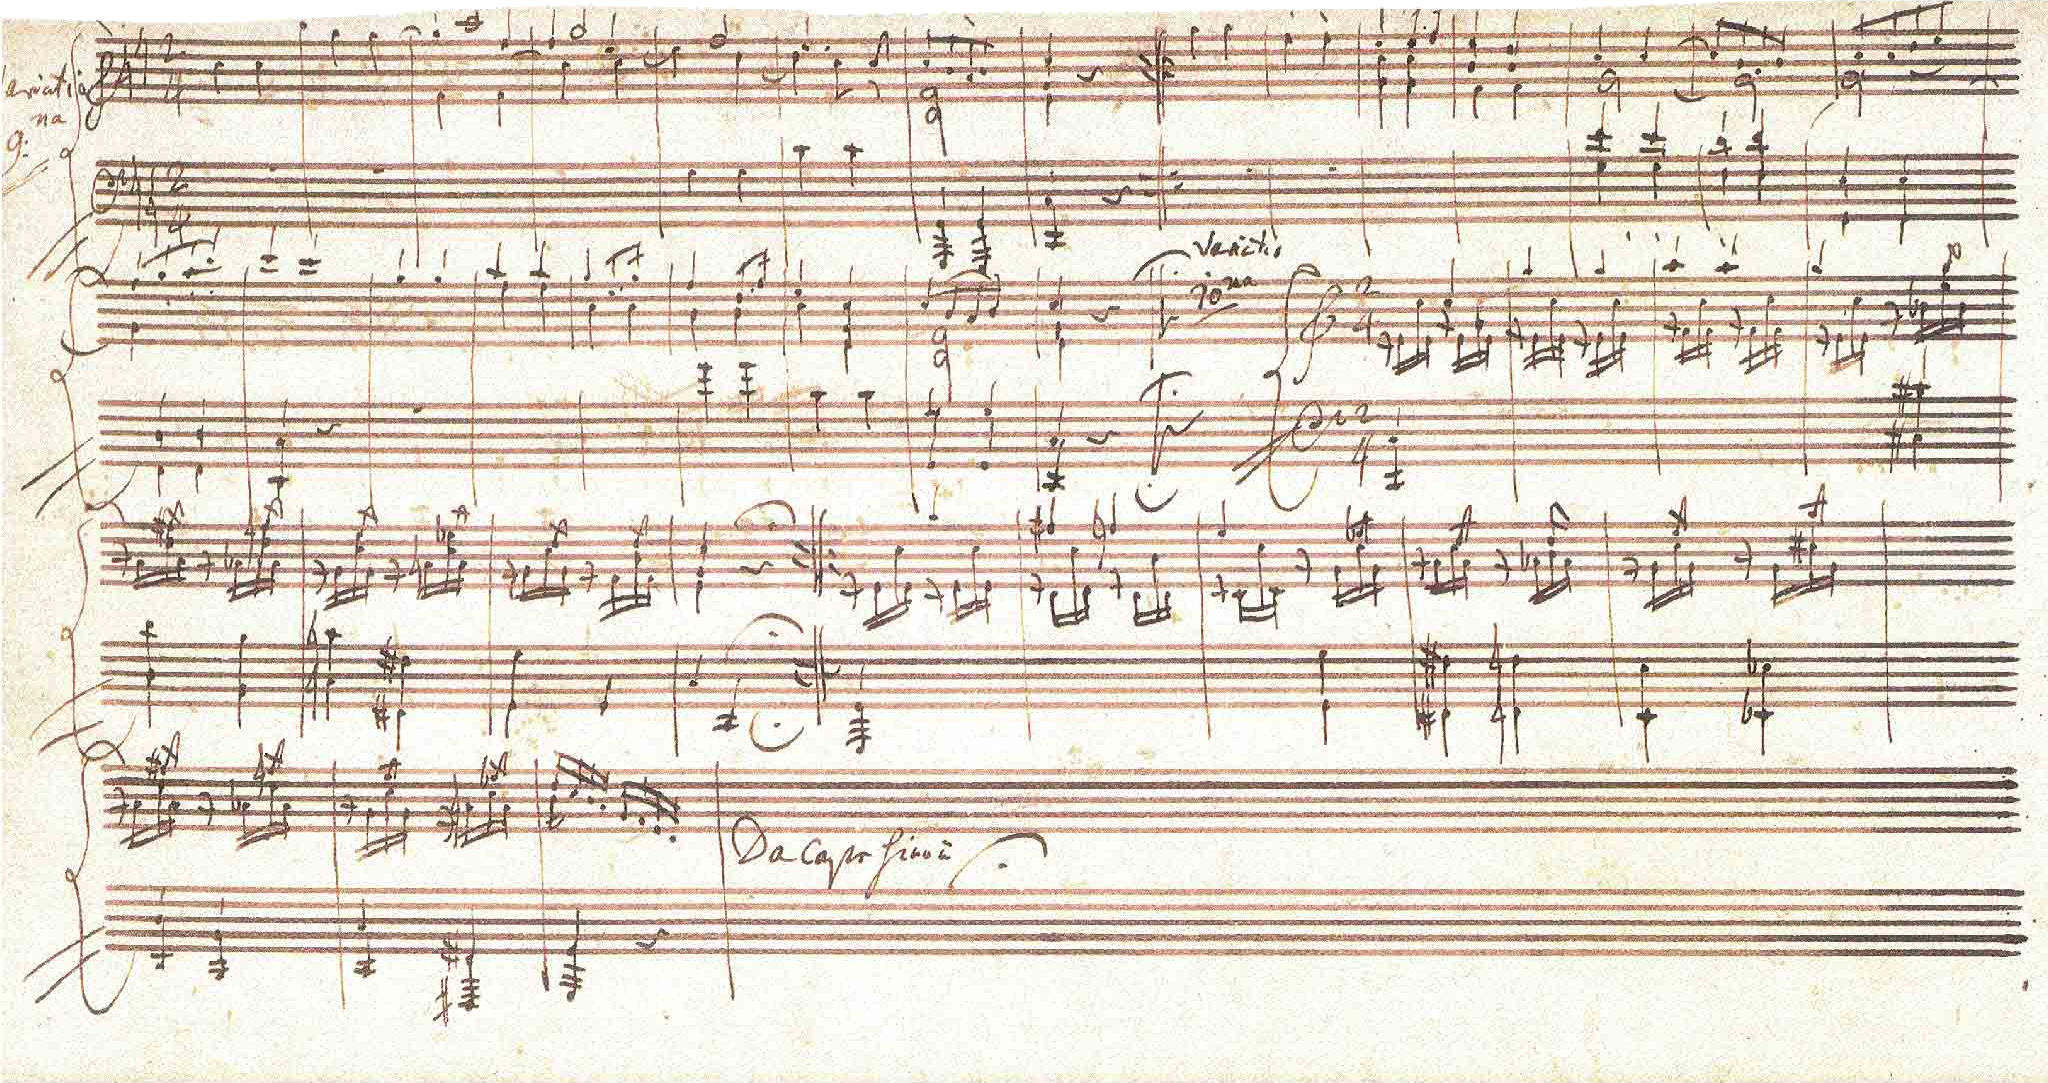 Variatio
na
9:
Variatio
10ma
Da Capo